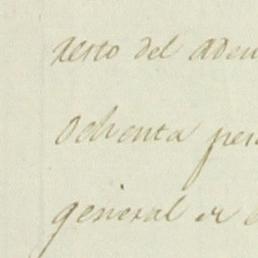 resto del adeu
ochenta pes
general de